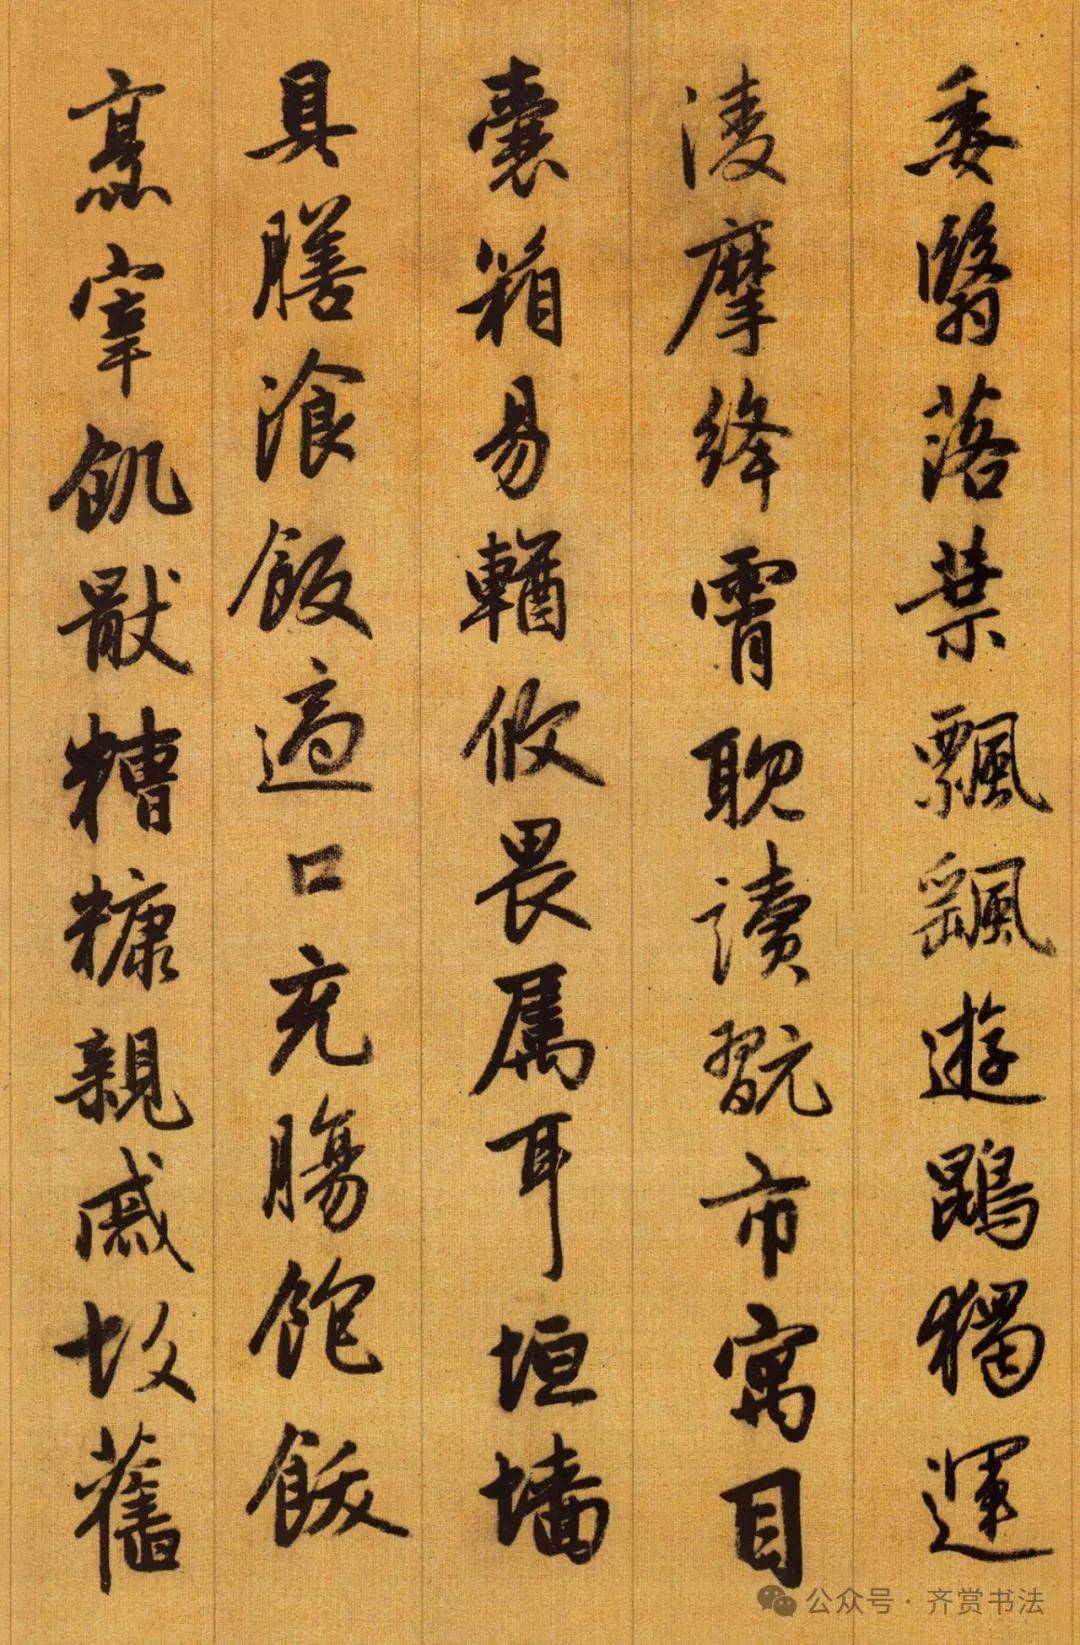 委翳落葉飄飖遊鵾獨運
淩摩絳霄耽讀翫市寓目
囊箱易輶攸畏属耳垣墻
具膳飡飯適口充腸飽飫
烹宰飢猒糟糠親戚故舊
公众号·齐赏书法